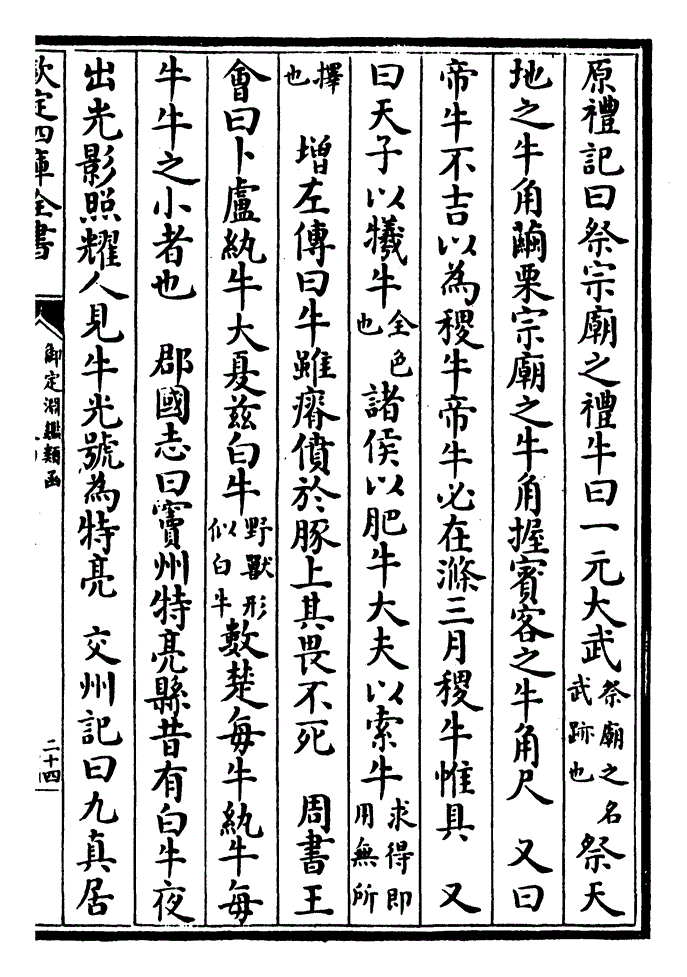 原禮記曰祭宗廟之禮牛曰一元大武祭廟之名武跡也祭天
地之牛角繭栗宗廟之牛角握賓客之牛角尺　又曰
帝牛不吉以為稷牛帝牛必在滌三月稷牛惟具　又
曰天子以犧牛全色也諸侯以肥牛大夫以索牛求得即用無所
擇也　增左傳曰牛雖瘠僨於豚上其畏不死　周書王
會曰卜盧紈牛大夏兹白牛野獸形似白牛數楚每牛紈牛每
牛牛之小者也　郡國志曰竇州特亮縣昔有白牛夜
出光影照耀人見牛光號為特亮　交州記曰九真居
欽定四庫全書
御定淵鑑類函
二十四